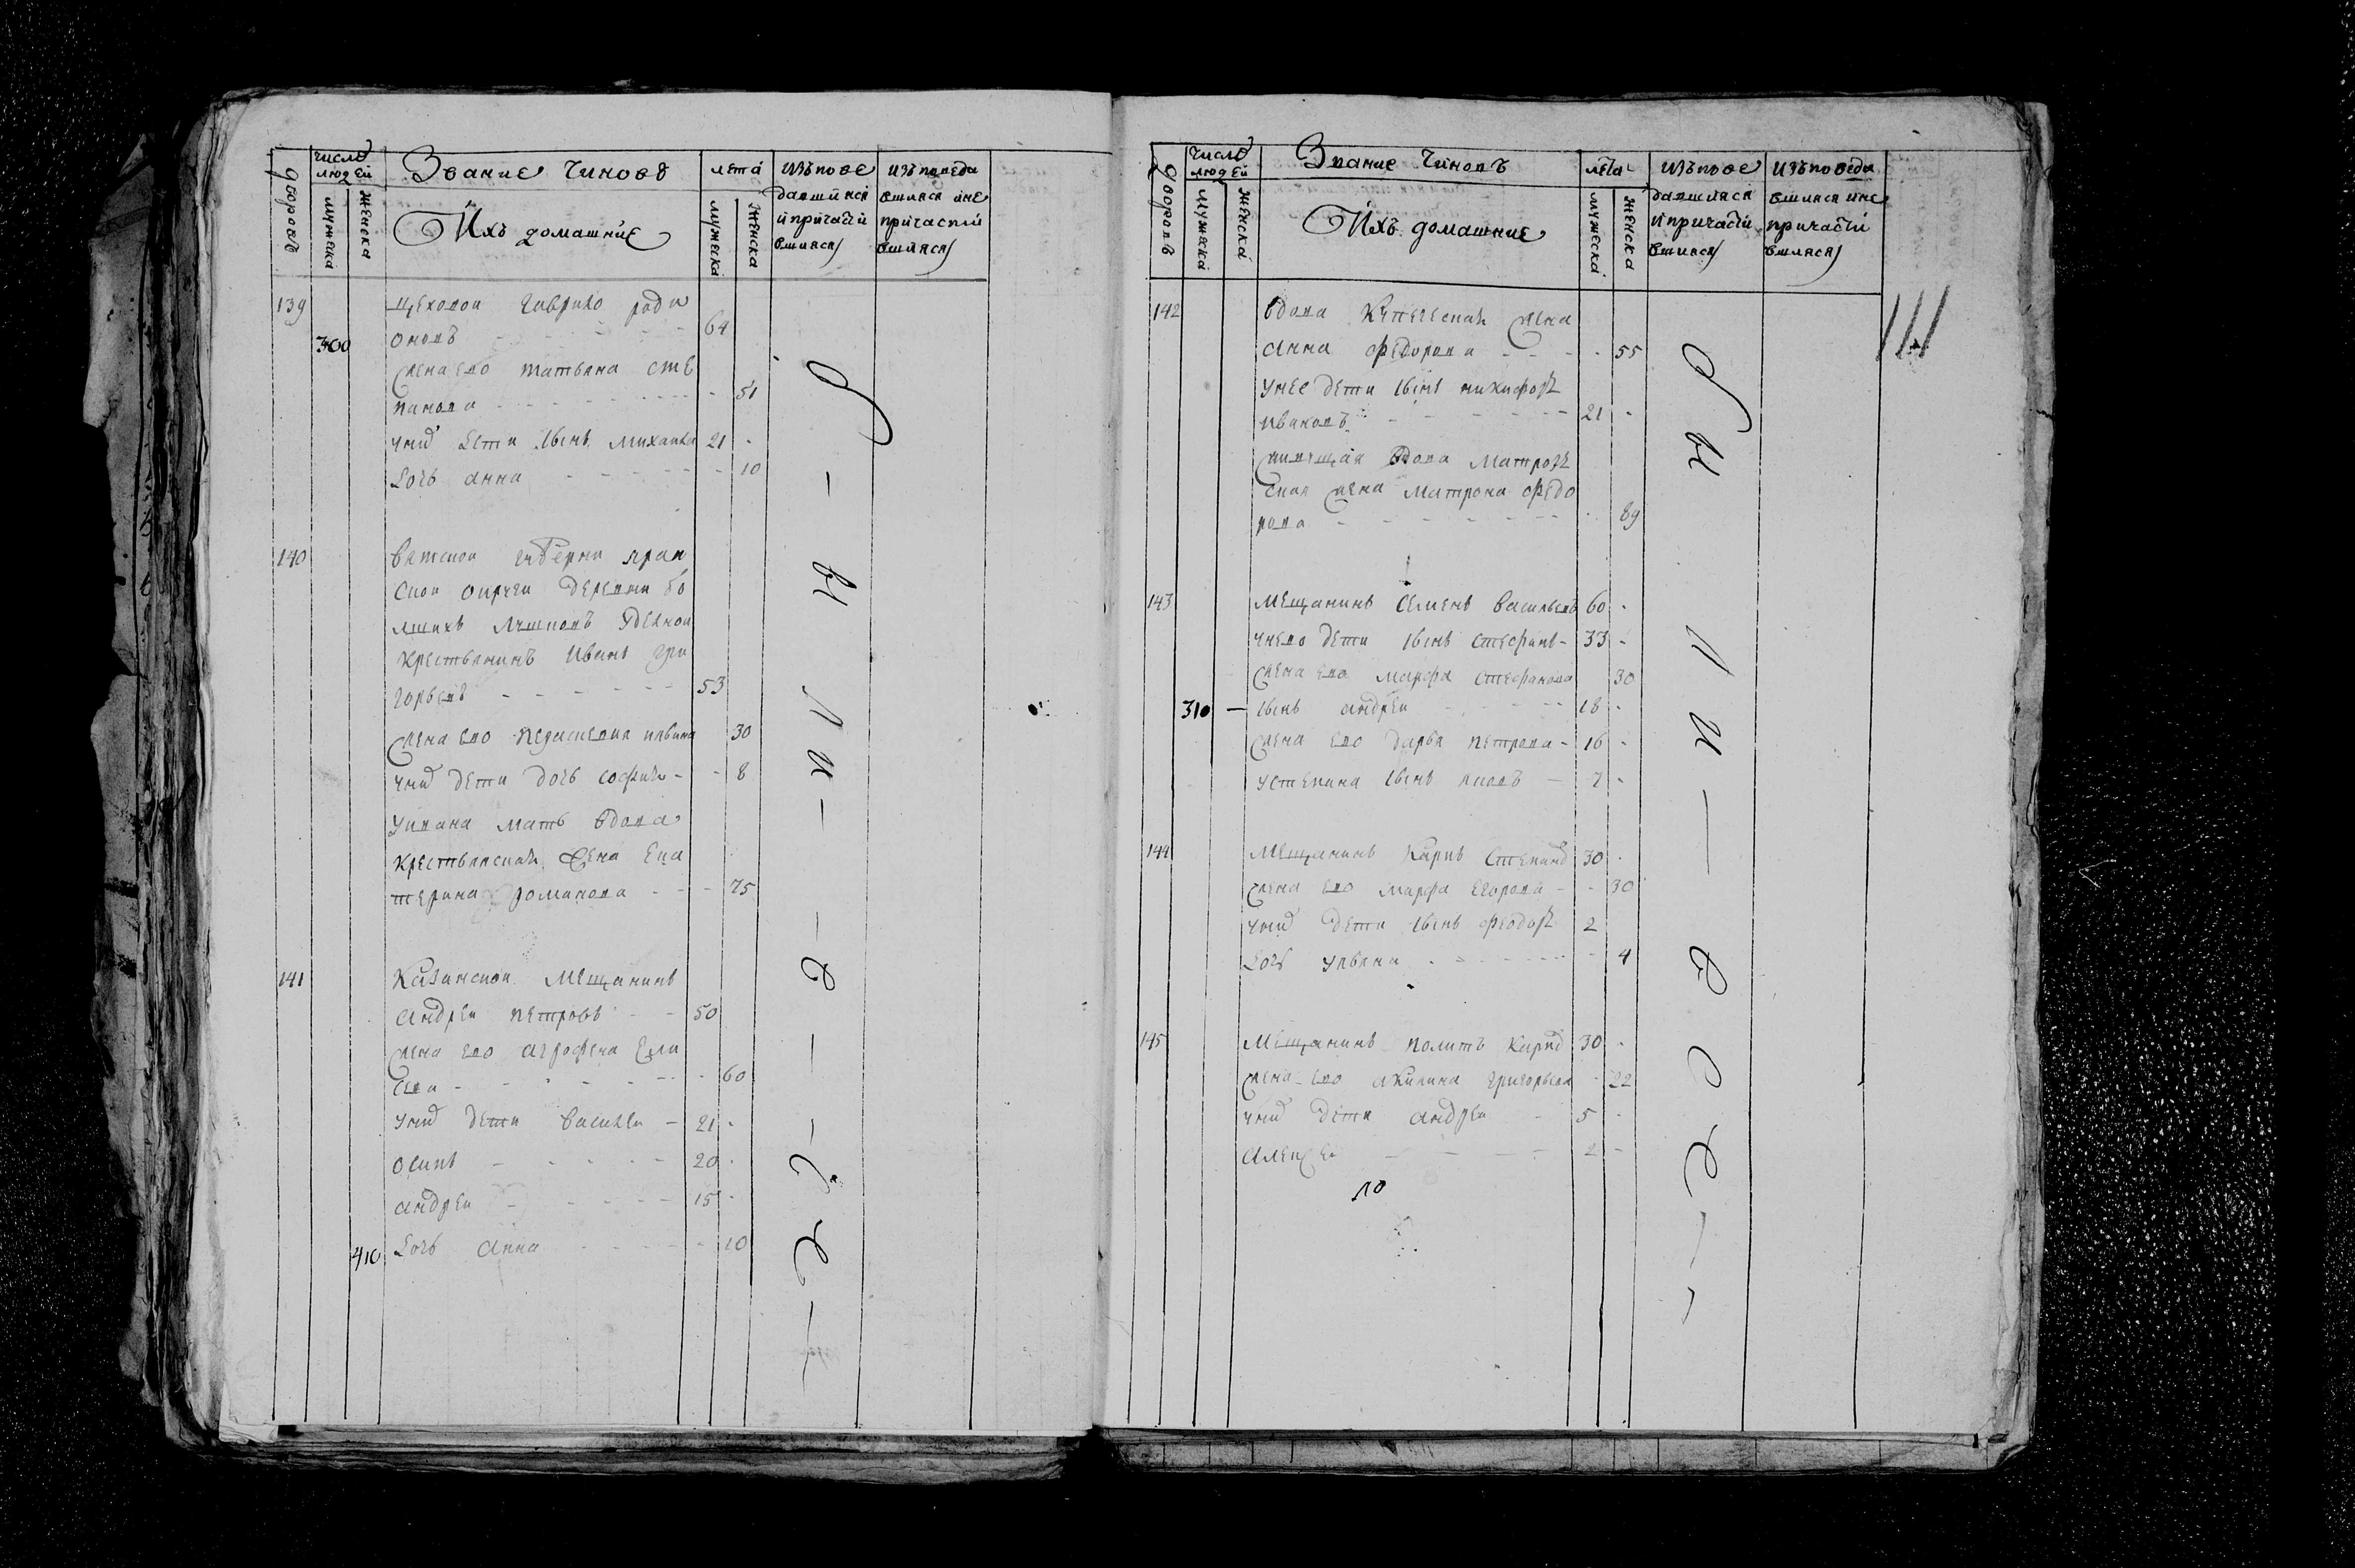 дворовъ
числѡ людей
мужеска
женска
Звание Чиновъ
Ихъ домашние
лета
мужеска
женска
изъпове
давшияся
и причасти
вшияся
изъповеда
вшияся ине
причасти
вшияся
139
300
цеховой гаврило роди
оновъ - - - 64
жена ево татьяна сте
панова - - - 51
у них дети сынъ михаила 21 -
дочь анна - - - 10
140
вятской губерни яран
ской округи деревни бо
лшихъ удельной
крестьянинъ иванъ гри
горьевъ - - - 53
жена ево 30
у них дети дочь софия - - 8
у ивана мать вдова
крестьянская жена ека
терина романова - - - 75
141
Казанской мещанинъ
андрей петровъ - - 50
жена ево агрофена ели
сеева - - - 60
у них дети василеи - 21 -
осипъ - - - 20 -
андреи - - - 15 -
410
дочь анна - - - 10
дворовъ
числѡ людей
мужеска
женска
Звание Чиновъ
Ихъ домашние
лета
мужеска
женска
изъпове
давшияся
и причасти
вшияся
изъповеда
вшияся ине
причасти
вшияся
142
вдова купеческая жена
анна федорова - - - 55
у нее дети сынъ никифоръ
ивановъ - - - 21 -
вдова матроз
ская жена матрона федо
рова - - - 89
143
мещанинъ семенъ васильевъ 60 -
у нево дети сынъ стефанъ - 33 -
жена ево марфа стефанова 30
310 -
сынъ андреи - - - 18 -
жена ево дарья петрова - 16 -
у степана сынъ яковъ - 7 -
144
мещанинъ карпъ степанов 30 -
жена ево марфа егорова - - 30
у них дети сынъ феодоръ 2
дочь ульяна - - - 4
145
мещанинъ политъ карпов 30 -
жена ево акилина григорьева - 22
у них дети андреи - 5 -
алексеи - - - 2 -
по
были
все